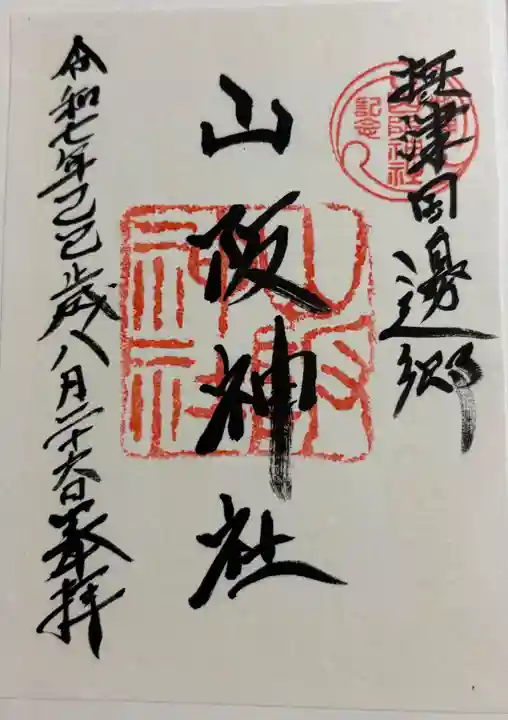 摂津田邊郷
山阪神社
令和七年乙巳歳八月二十六日奉拝
記念
山阪神社